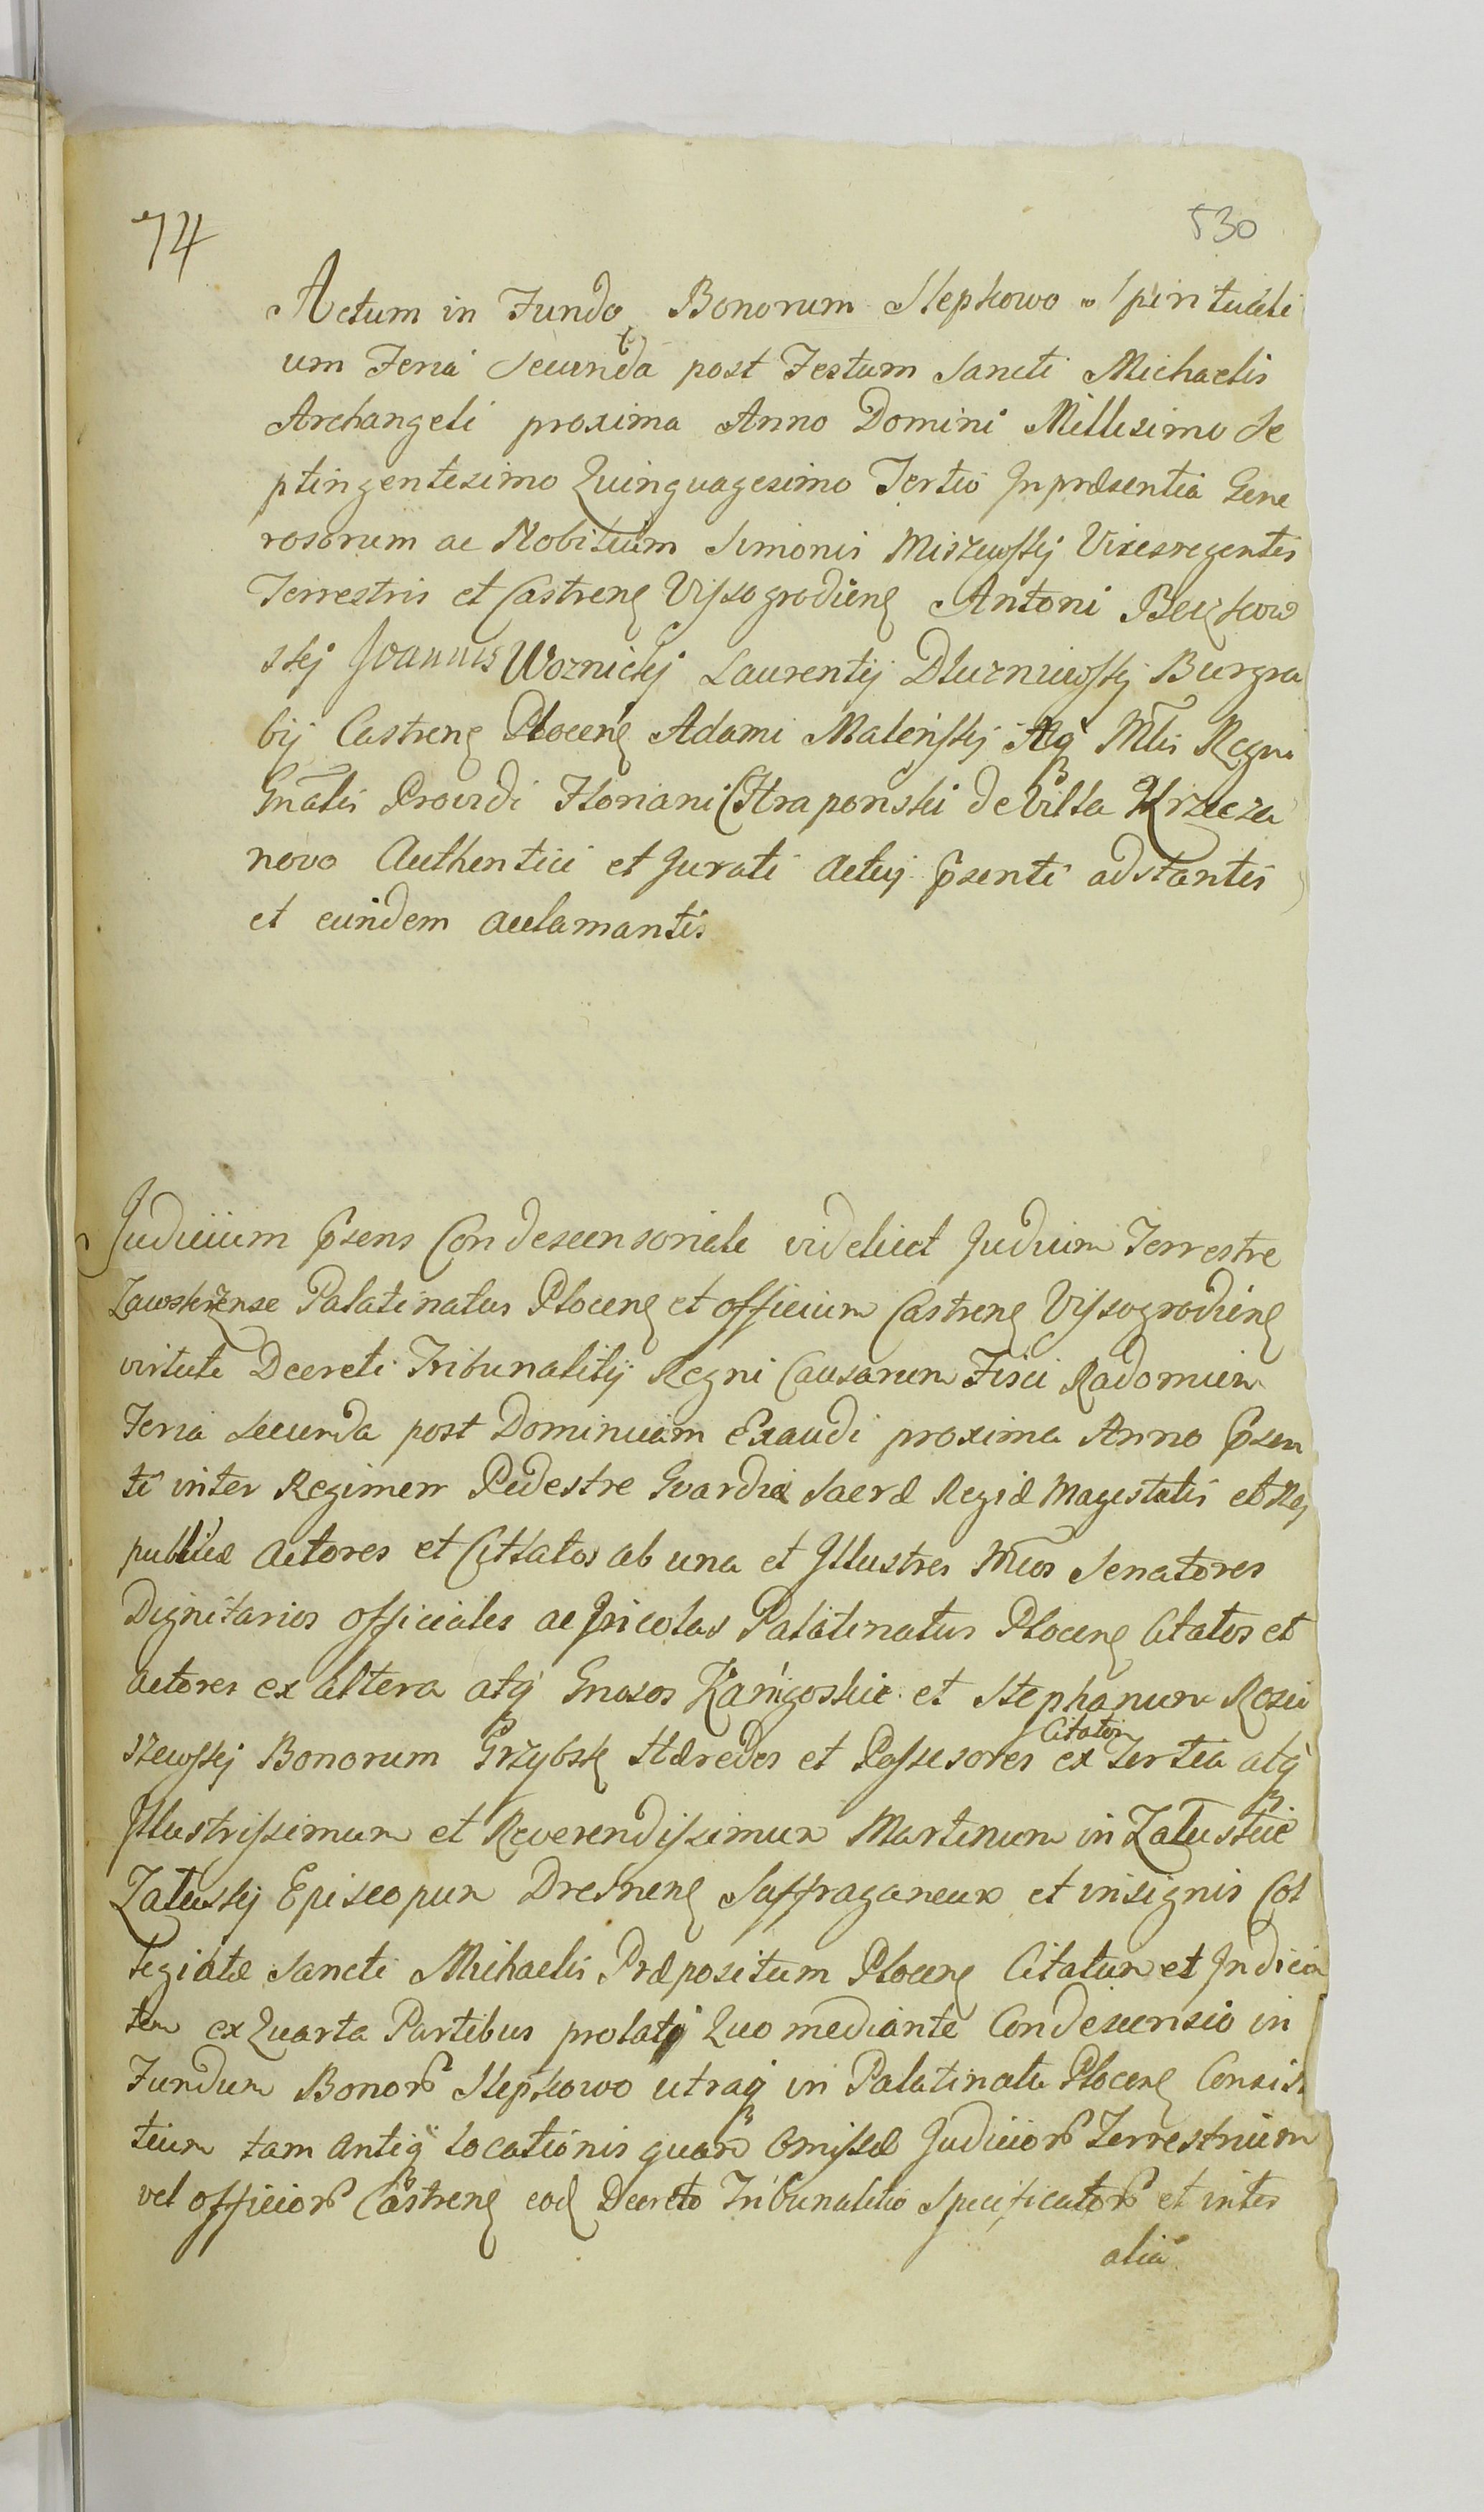 74
530
Actum in Fundo Bonorum Slepkowo Spirituali
um Feria Secunda post Festum Sancti Michaelis
Archangeli proxima Anno Domini Millesimo Se
ptingentesimo Quinquagesimo Tertio In præsentia Gene
rosorum ac Nobilium Simonis Miszewskij Vicesregentis
Terrestris et Castren Vissogrodien Antoni
skij Joannis Woznickij Laurentij Dluzniewskij Burgra
bij Castren Plocen Adami Malenskij Mtis Regni
Gnalis Providi Floriani Chraponski de Villa Krzecza
novo Authentici et Jurati Actuj psenti adstantis
et eundem aclamantis
Judicium psens Condescensoriale videlicet Judicium Terrestre
Zawskrzense Palatinatus Plocen et officium Castren Vissogrodien
virtute Decreti Tribunalitij Regni Causarum Fisci Radomien
Feria Secunda post Dominicam Exaudi proxima Anno psen
ti inter Regimen Pedestre Gvardiæ Sacræ Regiæ Magestatis et Rej
publicæ Actores et Cittatos ab una et Illustres Mficos Senatores
Dignitarios officiales ac Incolas Palatinatus Plocen Citatos et
actores ex altera atq Gnosos Kanigoskie et Stephanum Rosci
szewskij Bonorum Grzybsk Hæredes et Possesores Citatos ex tertia atq
Illustrissimum et Reverendissimum Martinum in Zaluskie
Zaluskij Episcopum Dresnen Suffraganeum et insignis Col
legiatæ Sancti Michaelis Præpositum Plocen Citatum et Indica
tum ex Quarta Partibus prolatj Quo mediante Condescensio in
Fundum Bonor Slepkowo utraq in Palatinatu Plocen Consis
tium tam antiq locationis quam omissæ Judicior Terrestrium
vel officior Castren eod Decreto Tribunalitio Specificator et inter
alia